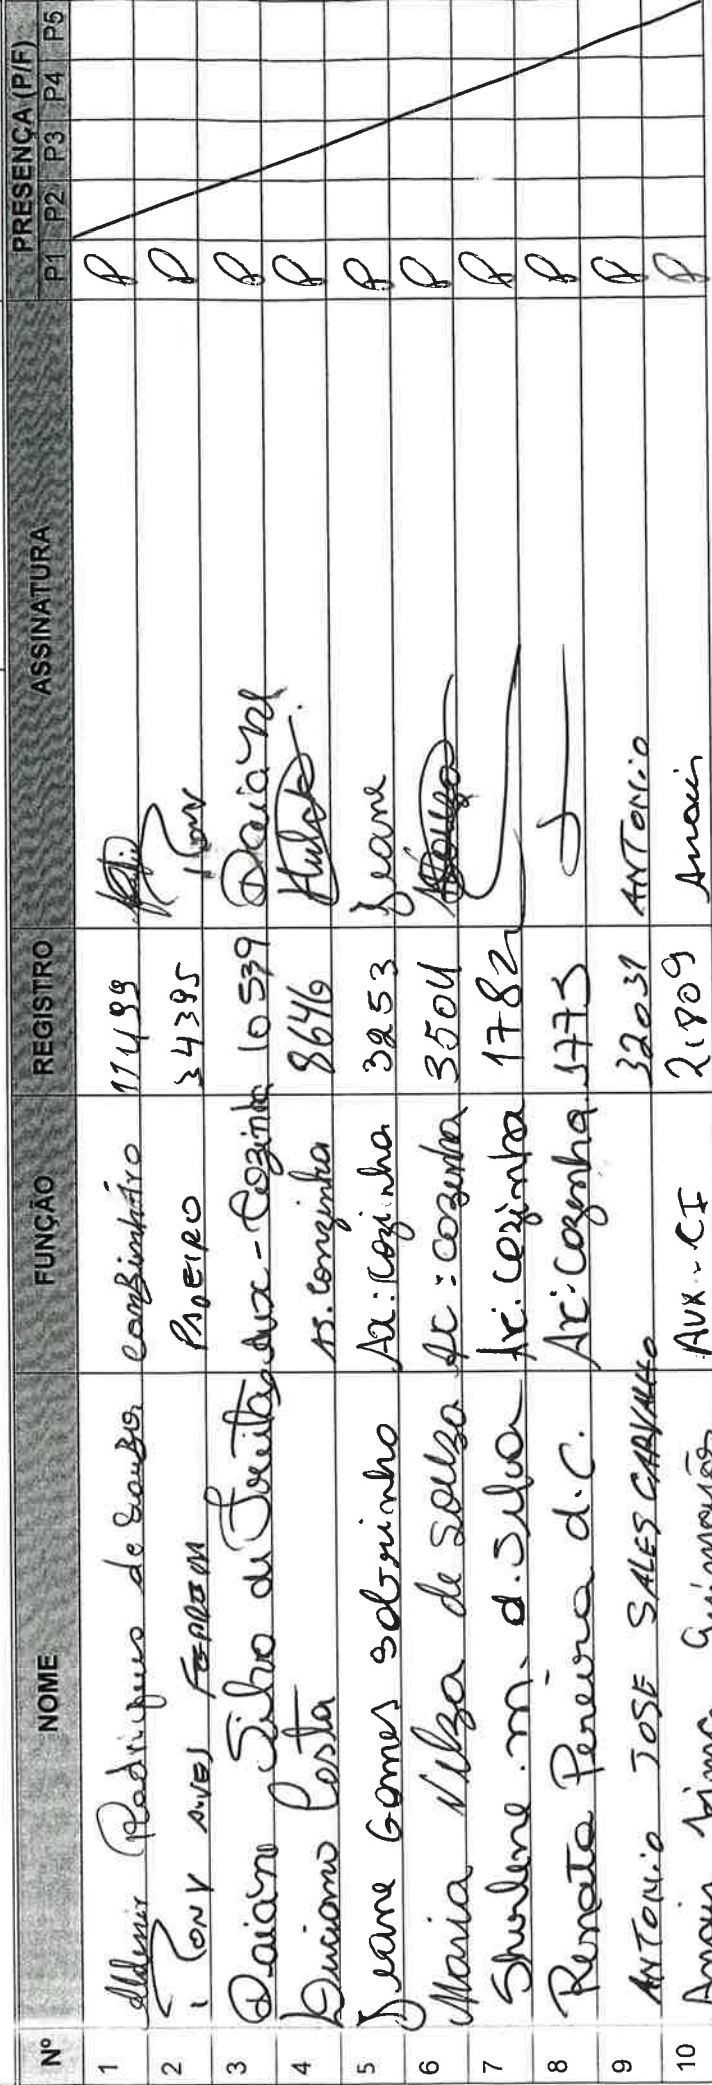 Nº NOME FUNÇÃO REGISTRO ASSINATURA PRESENÇA (P/F)
P1 P2 P3 P4 P5
1 Aldenir Rodrigues de Souza conzinhéiro 171499 P
2 Rony Alves PADEIRO 34395 Rony P
3 Daiane Silva de Freitas Aux-Cozinha 10539 Daiane P
4 Luciano Costa As. Conzinha 8646 P
5 Jeane Gomes Sobrinho Ax: Cozinha 3253 Jeane P
6 Maria Nilza de Souza Ac: cozinha 3504 P
7 Shirlene. m. d. Silva Ax: Cozinha 1782 P
8 Renata Pereira d. C. Ax: Cozenha 1773 P
9 ANTONIO JOSE SALES CARVALHO 32031 ANTONIO P
10 Lima Guimarães AUX.-CI 21809 P